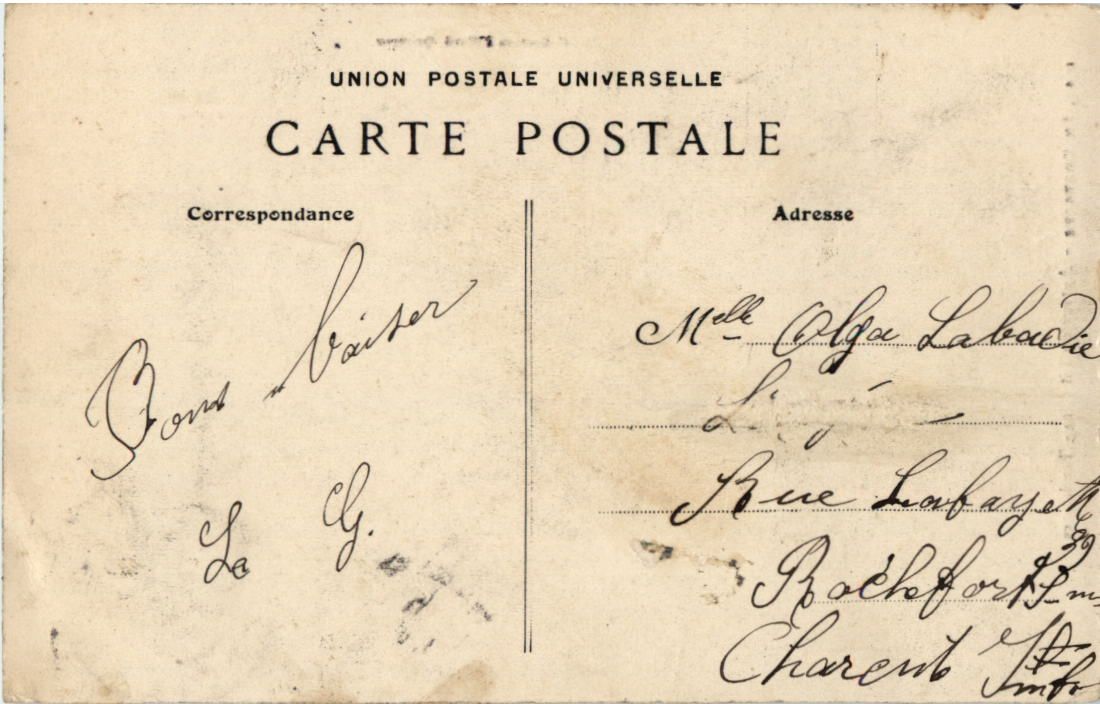 UNION POSTALE UNIVERSELLE
CARTE POSTALE
Correspondance
Bons baiser
Le G.
Adresse
Melle Olga Labadie
Rue Lafayette
Rochefort S-m
Charent Inf